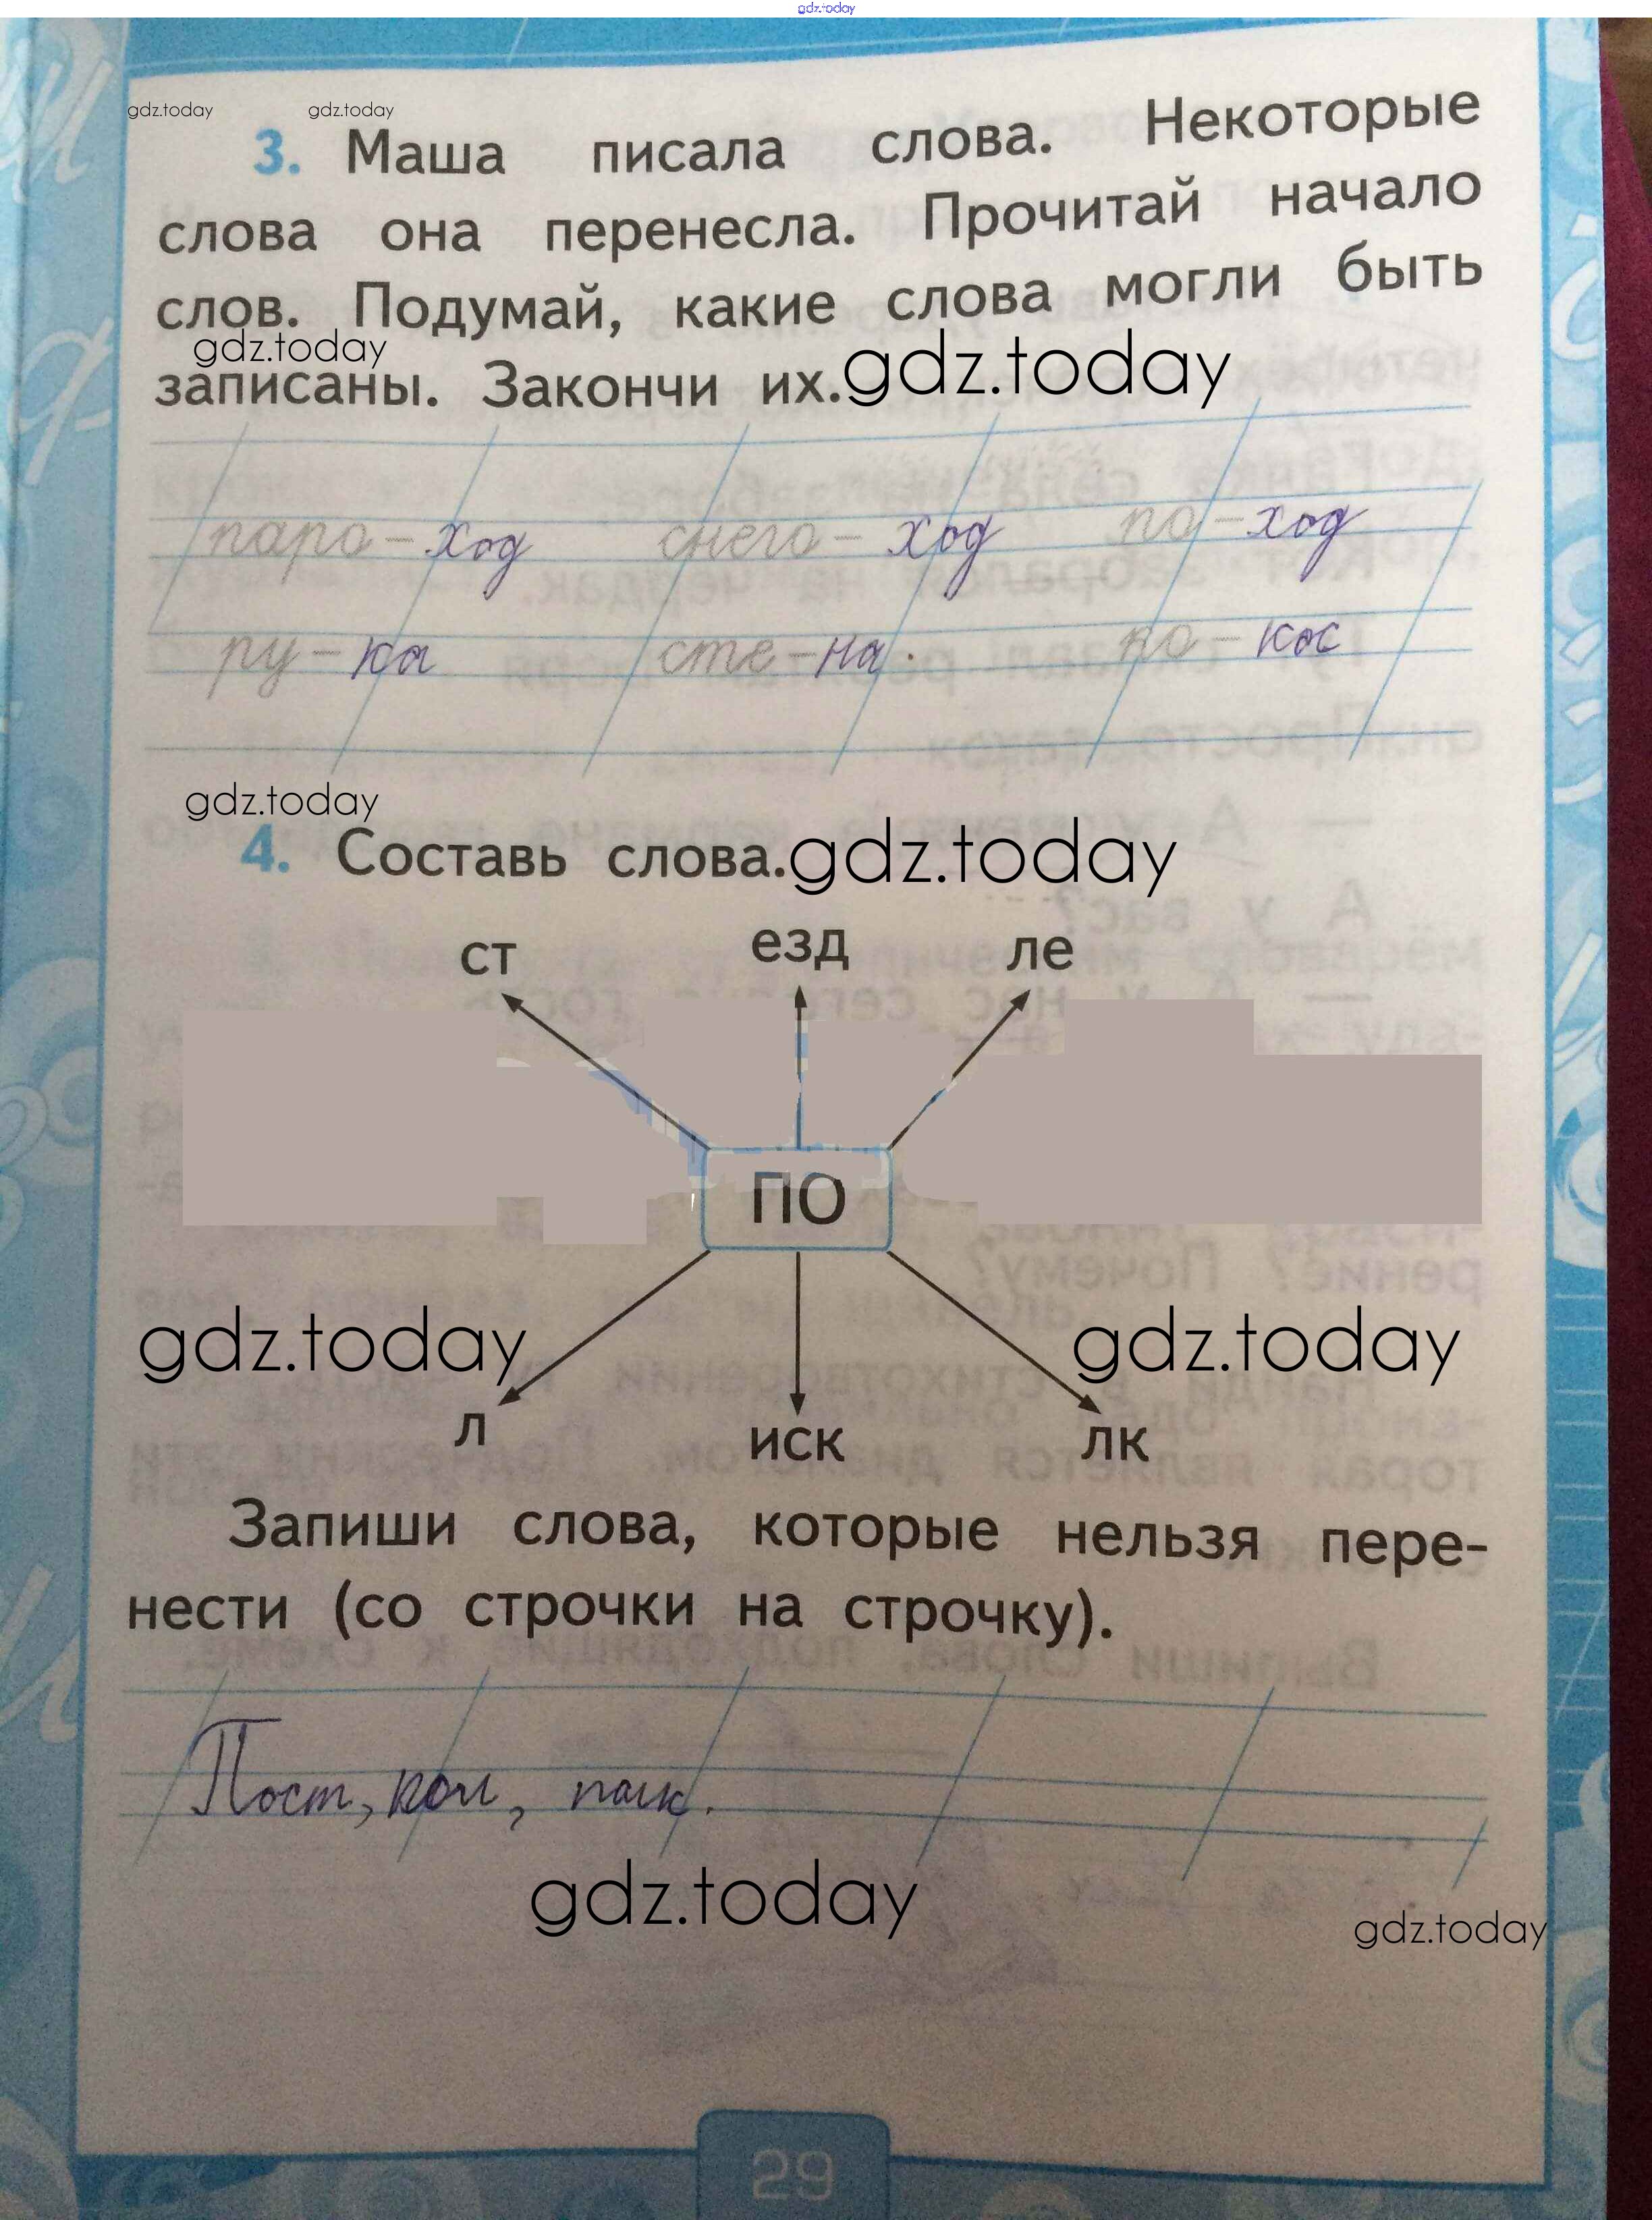 gdz.today
gdz.today gdz.today
3. Маша писала слова. Некоторые
слова она перенесла. Прочитай начало
слов. Подумай, какие слова могли быть
gdz.today
записаны. Закончи их. gdz.today
паро-ход снего-ход по-ход
ру-ка сте-на. ко-кос
gdz.today
4. Составь слова. gdz.today
ст езд ле
ПО
gdz.today gdz.today
л иск лк
Запиши слова, которые нельзя пере-
нести (со строчки на строчку).
Пост, пол, полк.
gdz.today
gdz.today
29